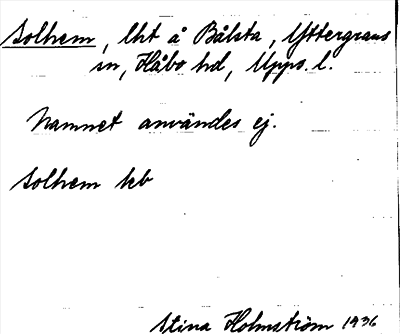 Solhem, lht å Bålsta, Yttergrans
sn, Håbo hd, Upps. l.
Namnet användes ej.
Solhem kb
Stina Holmström 1936